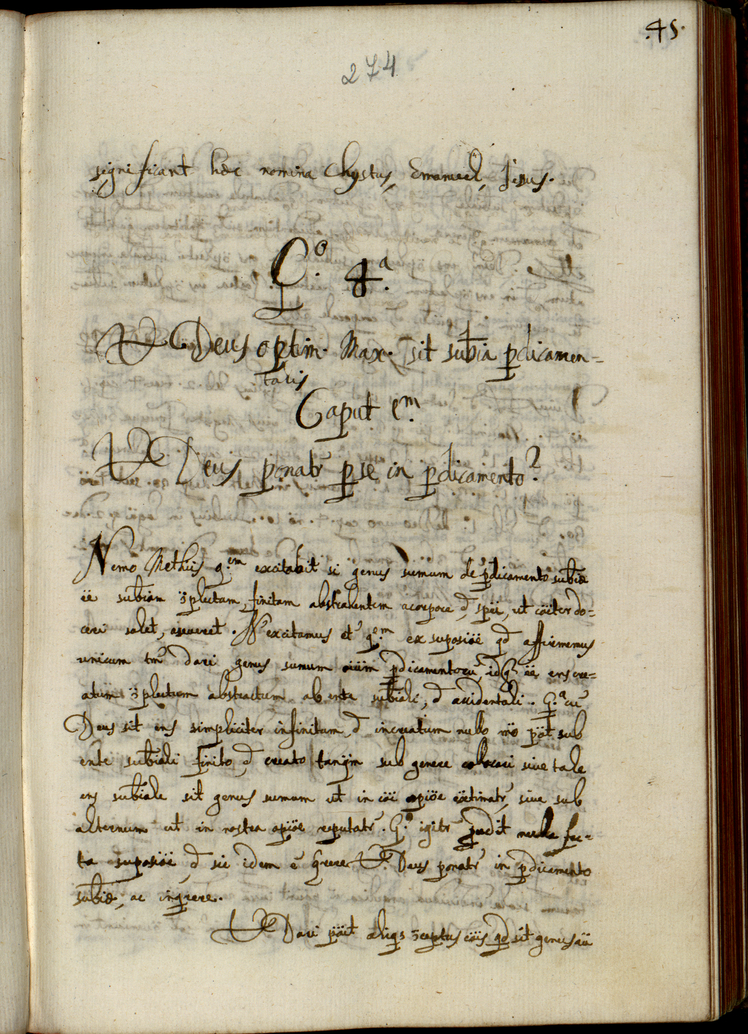 45.
274
significant hæc nomina Chrystus, Emanuel, Jesus.
Q.º 4.ª
V. Deus optim. Max. sit subia pdicamen-
talis
Caput 1.m
V. Deus ponatr p se in pdicamento?
Nemo q.em excitabit si genus sumum de pdicamento subiæ
ee subiam finitam abstrahentem a corpore, et spu, ut coiter do-
ceri solet, N excitamus et q.em ex suposioe qd affirmemus
unicum tm dari genus sumum oium pdicamentoru, ens cre-
atum abstractum ab ente subiali, et accidentali. Q.ª cu
Deus sit ens simpliciter infinitum, et increatum nullo mo pot sub
ente subiali finito, et creato tanqm sub genere collocari sive tale
ens subiale sit genus sumum ut in coi opioe sive sub
alternum ut in nostra opioe reputatr. Q.º igitr pcedit fac-
ta suposioe, et sic idem e qrere V. Deus ponatr in pdicamento
subiæ, ac inqrere.
V. Dari poit aliqs cois qd sit genus